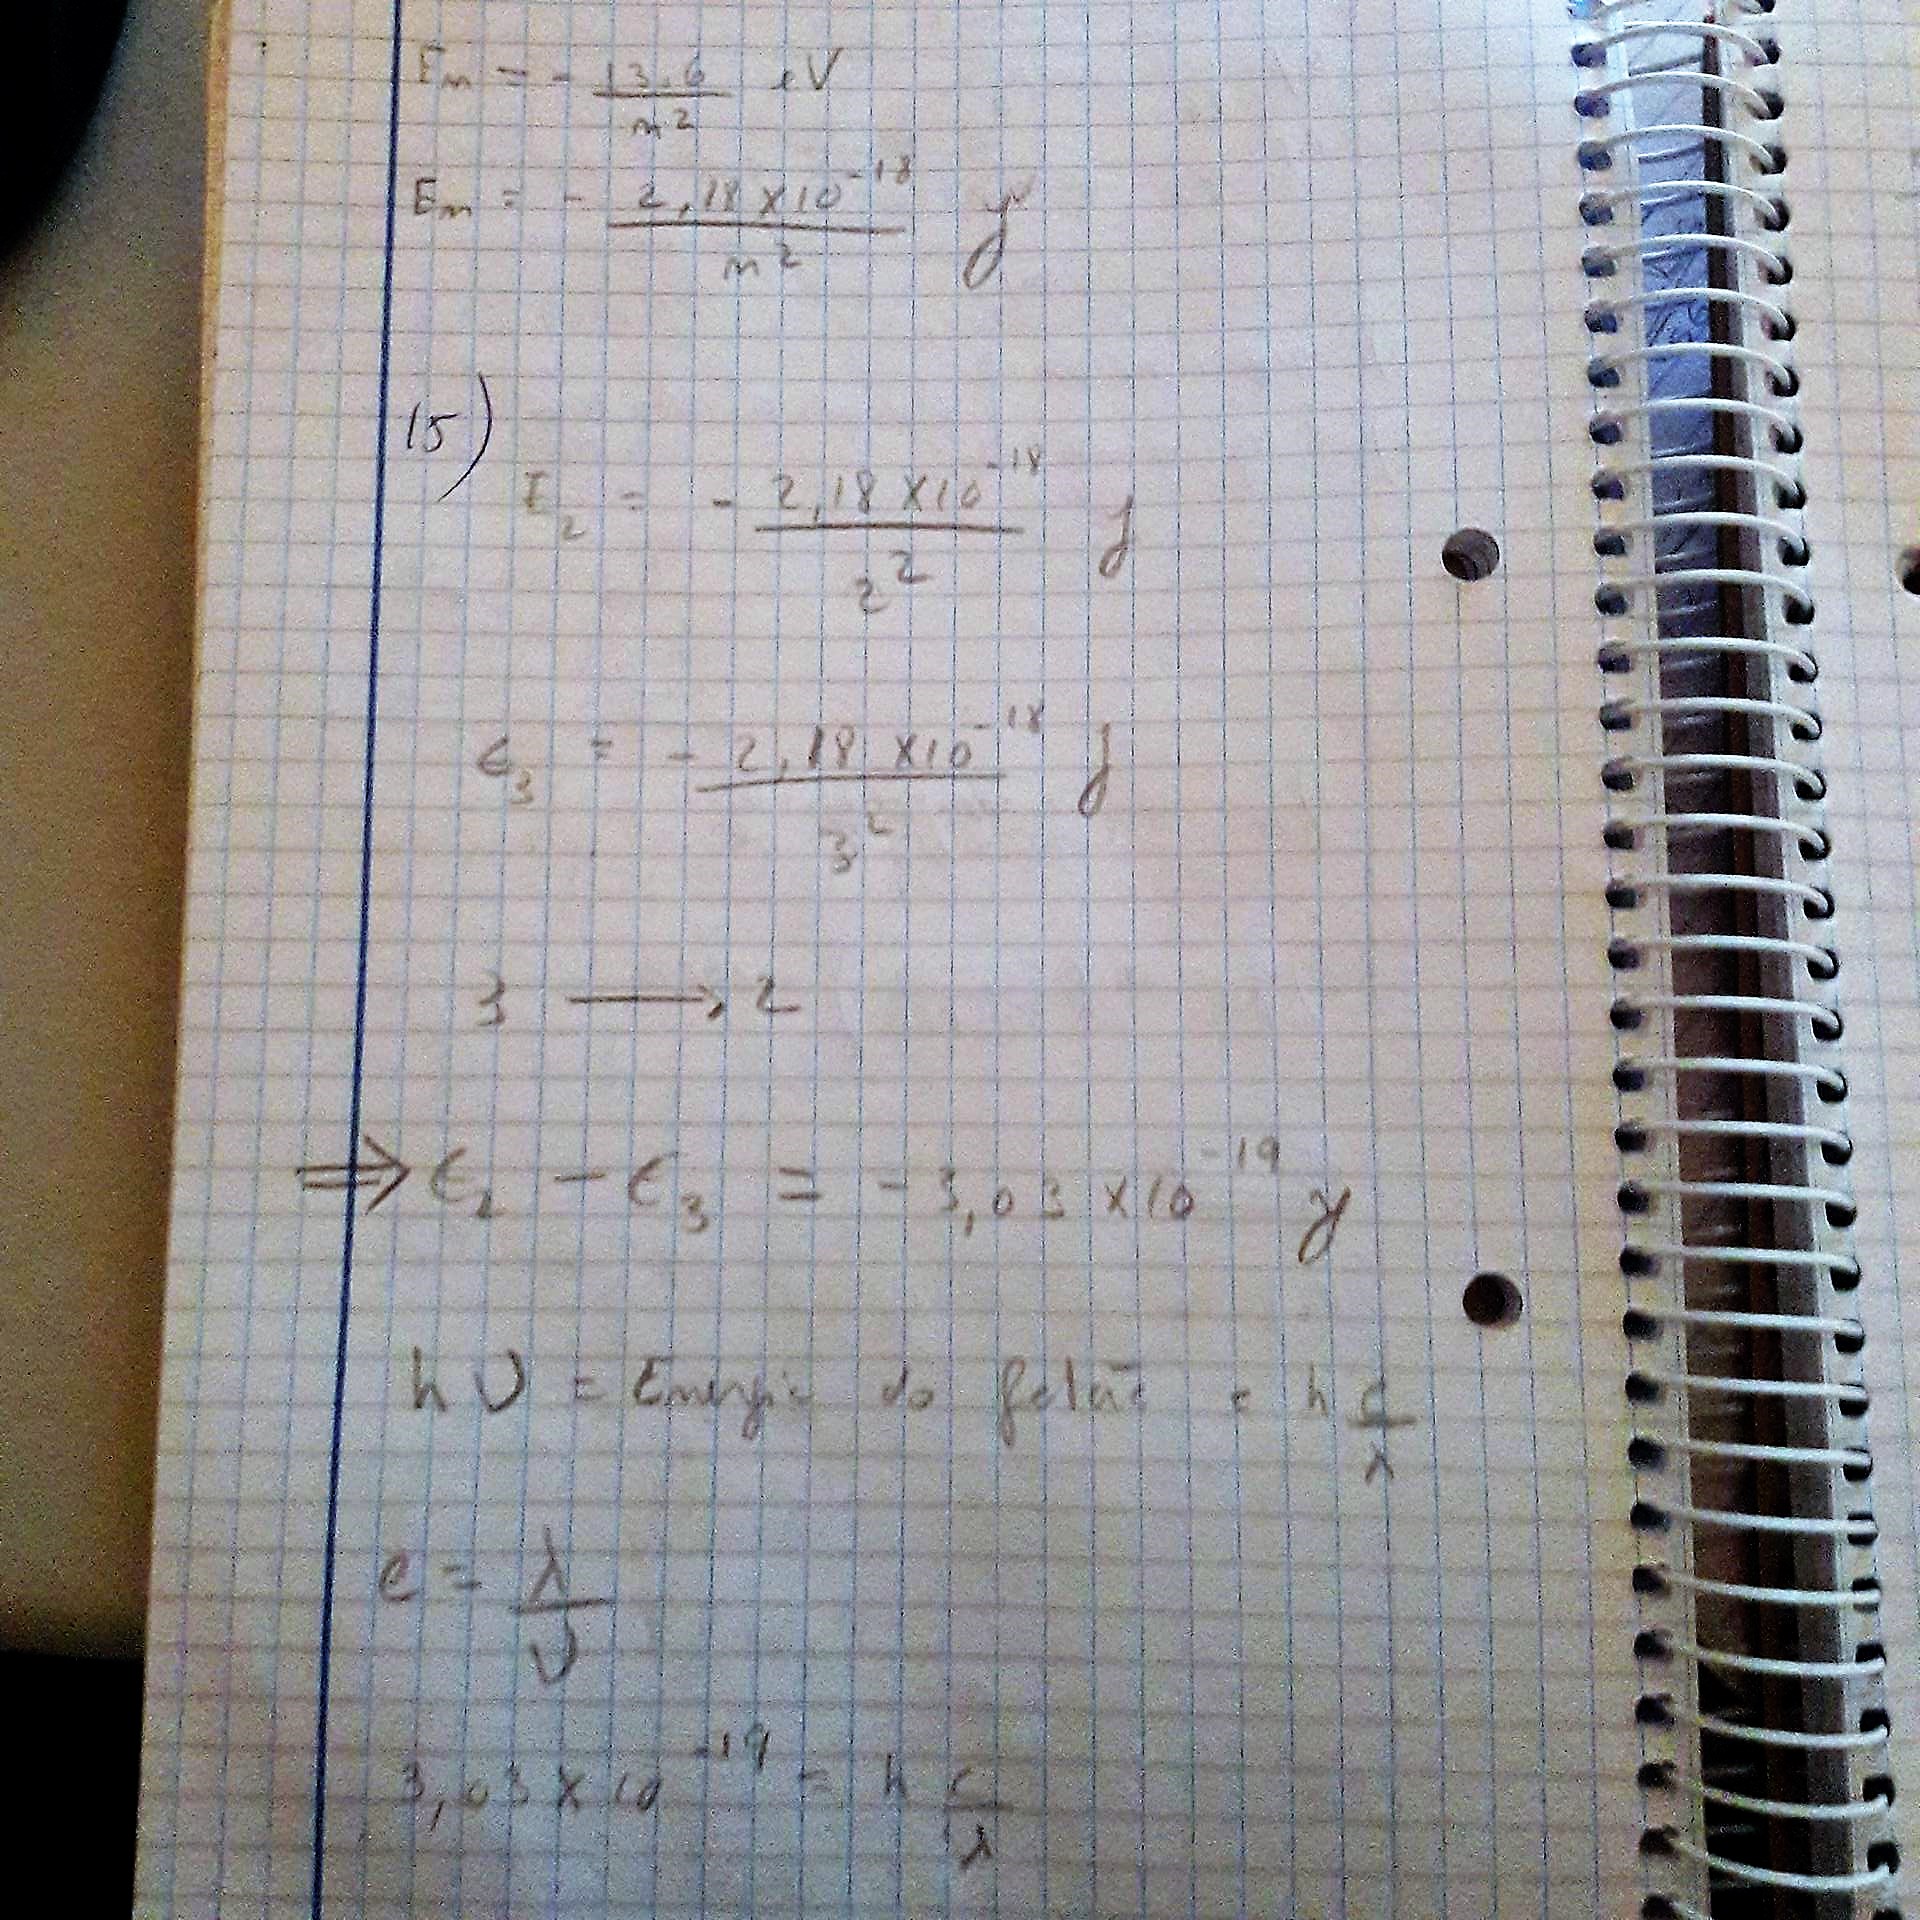 En = - 13.6/n² eV
En = - 2,18 x 10⁻¹⁸/n² J
15)
E₂ = - 2,18 x 10⁻¹⁸/2² J
E₃ = - 2,18 x 10⁻¹⁸/3² J
3 → 2
⇒ E₂ - E₃ = - 3,03 x 10⁻¹⁹ J
hν = Energia do fotão = h c/λ
c = λ/ν
3,03 x 10⁻¹⁹ = h c/λ